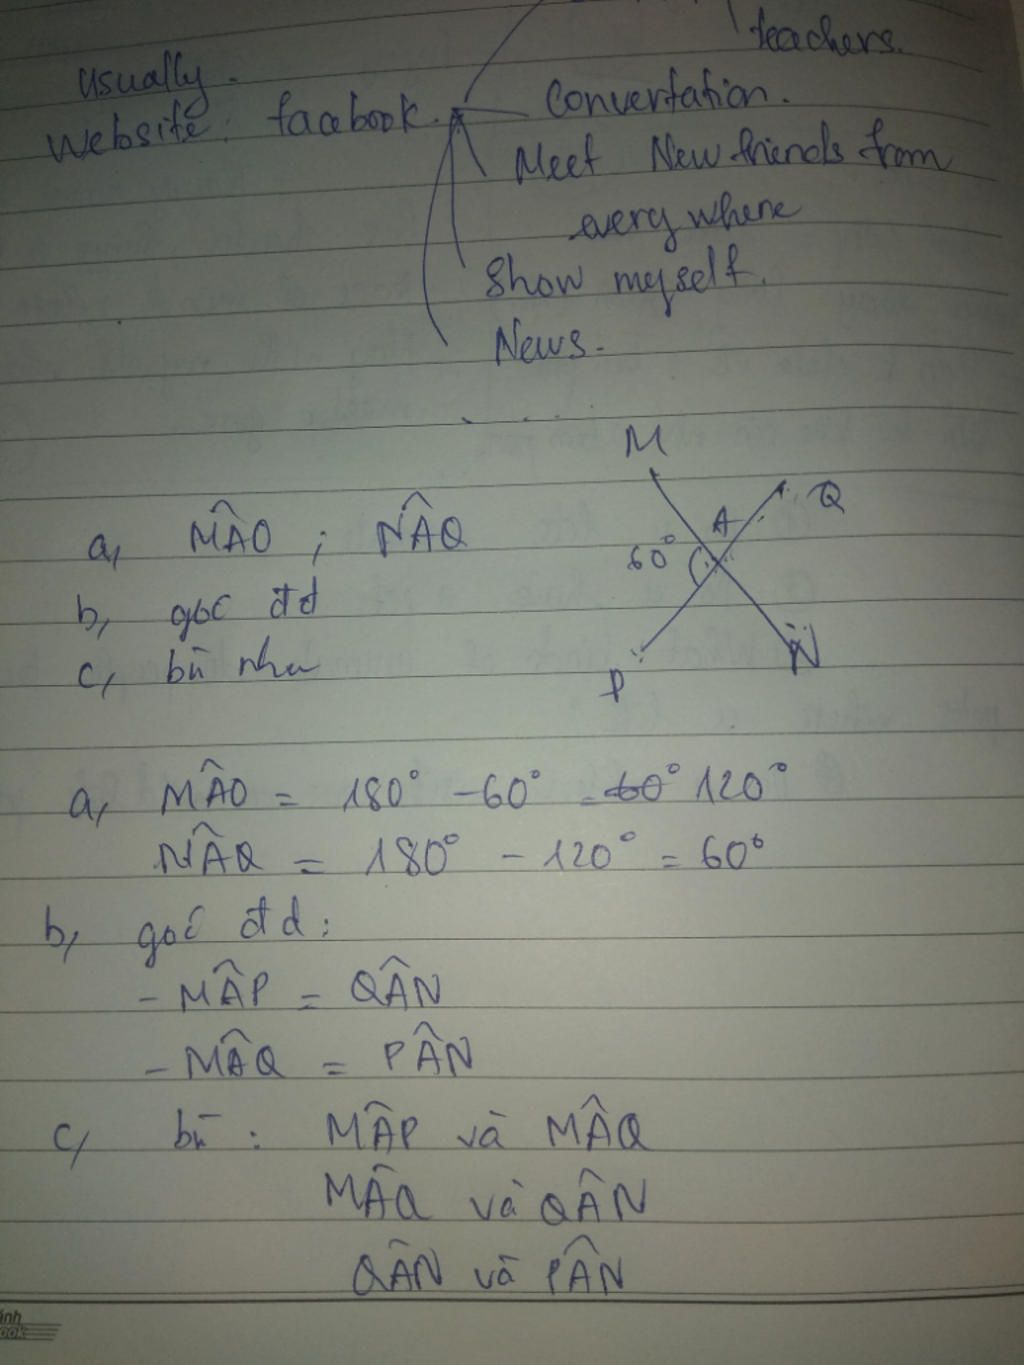 teachers.
Usually.
Website: facebook.
Convertation.
Meet New friends from
everywhere
Show myself.
News.
M
Q
A
60°
N
P
a, MÂO ; NÂQ
b, góc đđ
c, bù nhu
a, MÂO = 180° - 60° = 60° 120°
NÂQ = 180° - 120° = 60°
b, góc đđ:
- MÂP = QÂN
- MÂQ = PÂN
c, bù : MÂP và MÂQ
MÂQ và QÂN
QÂN và PÂN